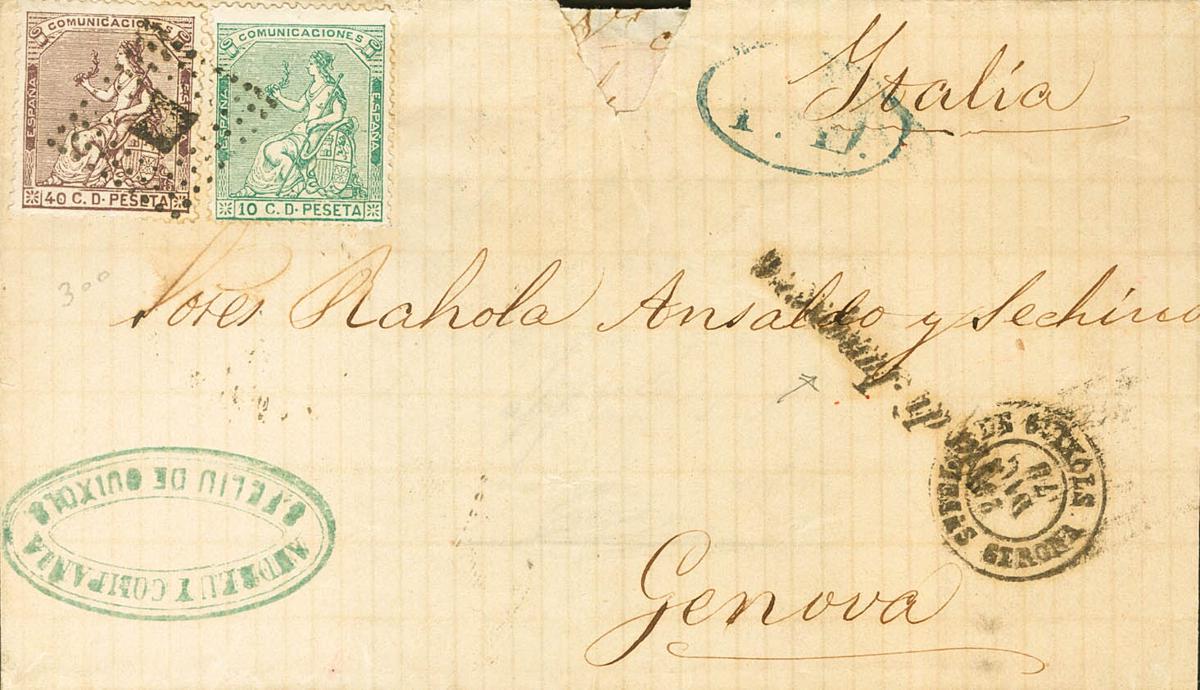 COMUNICACIONES
ESPAÑA
ESPAÑA
40 C. D. PESETA
COMUNICACIONES
ESPAÑA
ESPAÑA
10 C. D. PESETA
Italia
P. D.
300
Sores Rahola Ansaldo y Sechino
S. FELIU DE GUIXOLS
GERONA
DIC
73
ANDREU Y COMPAÑIA
S. FELIU DE GUIXOLS
Genova